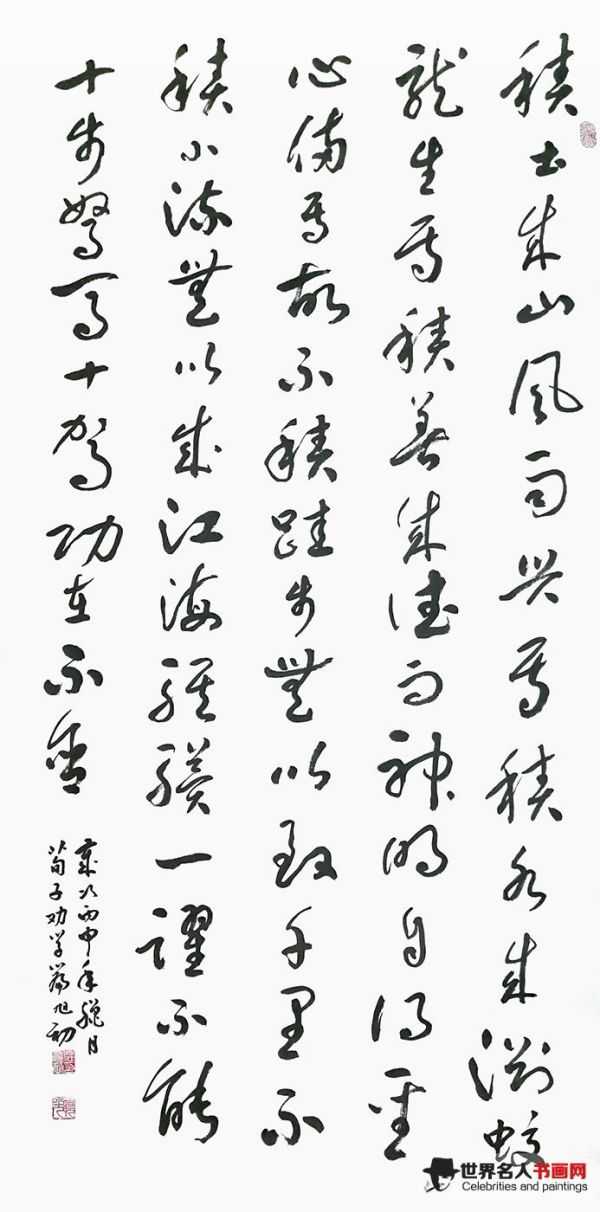 積土成山風雨興焉積水成淵蛟
龍生焉積善成德而神明自得聖
心備焉故不積跬步無以致千里不
積小流無以成江海騏驥一躍不能
十步駑馬十駕功在不舍
歲次丙申年臘月
荀子劝學篇旭初
世界名人书画网
Celebrities and paintings